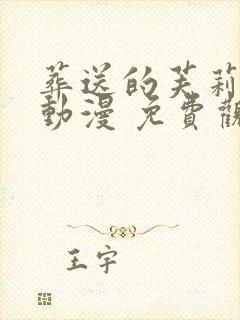 葬送的芙莉
動漫 免費觀
王宇